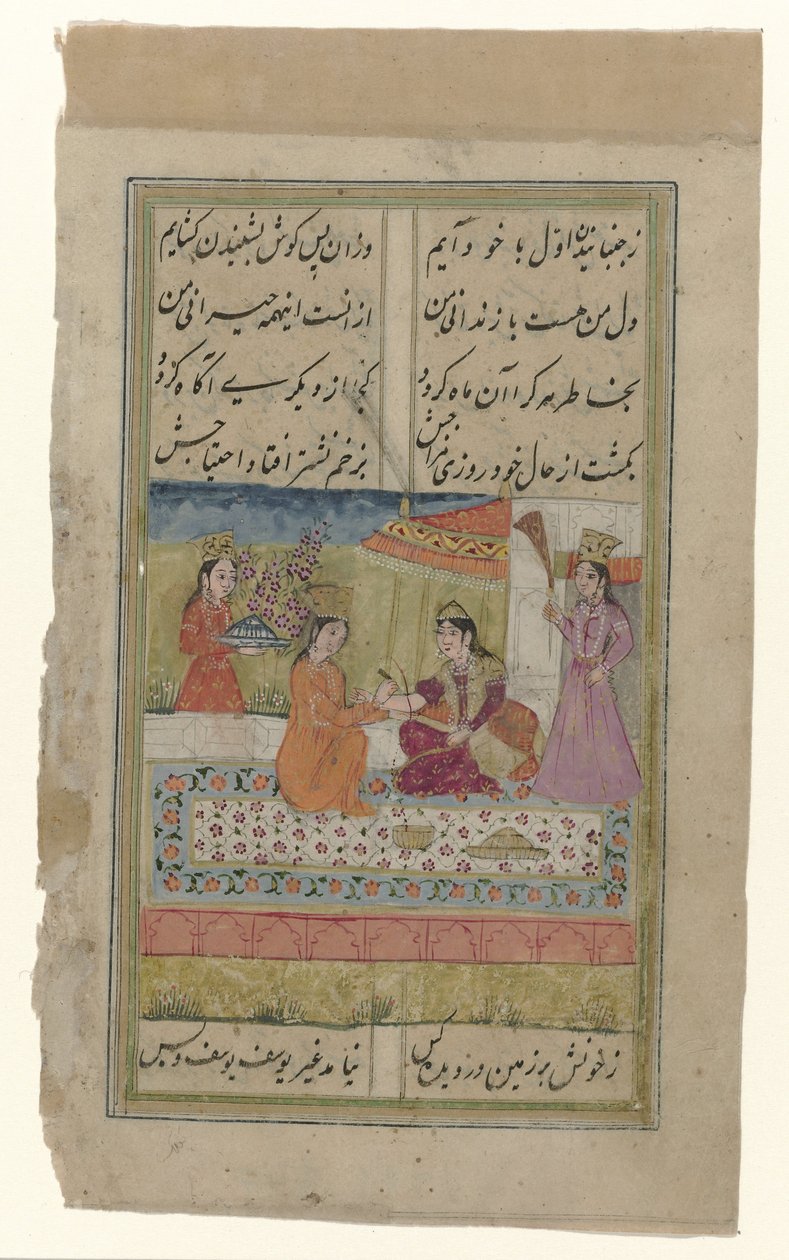 زجنبانیدن اول با خود آیم وزان پس کوش بشنیدن کشایم
دل من هست با زندانی من ازانست اینهمه حیرانی من
بخاطر هر کرا آن ماه کردد کجا از دیکری آکاه کردد
بکشت از حال خود روزی مزاجش بزخم نشتر افتاد احتیاجش
زخونش بر زمین در دیده کس نیامد غیر یوسف یوسف و بس